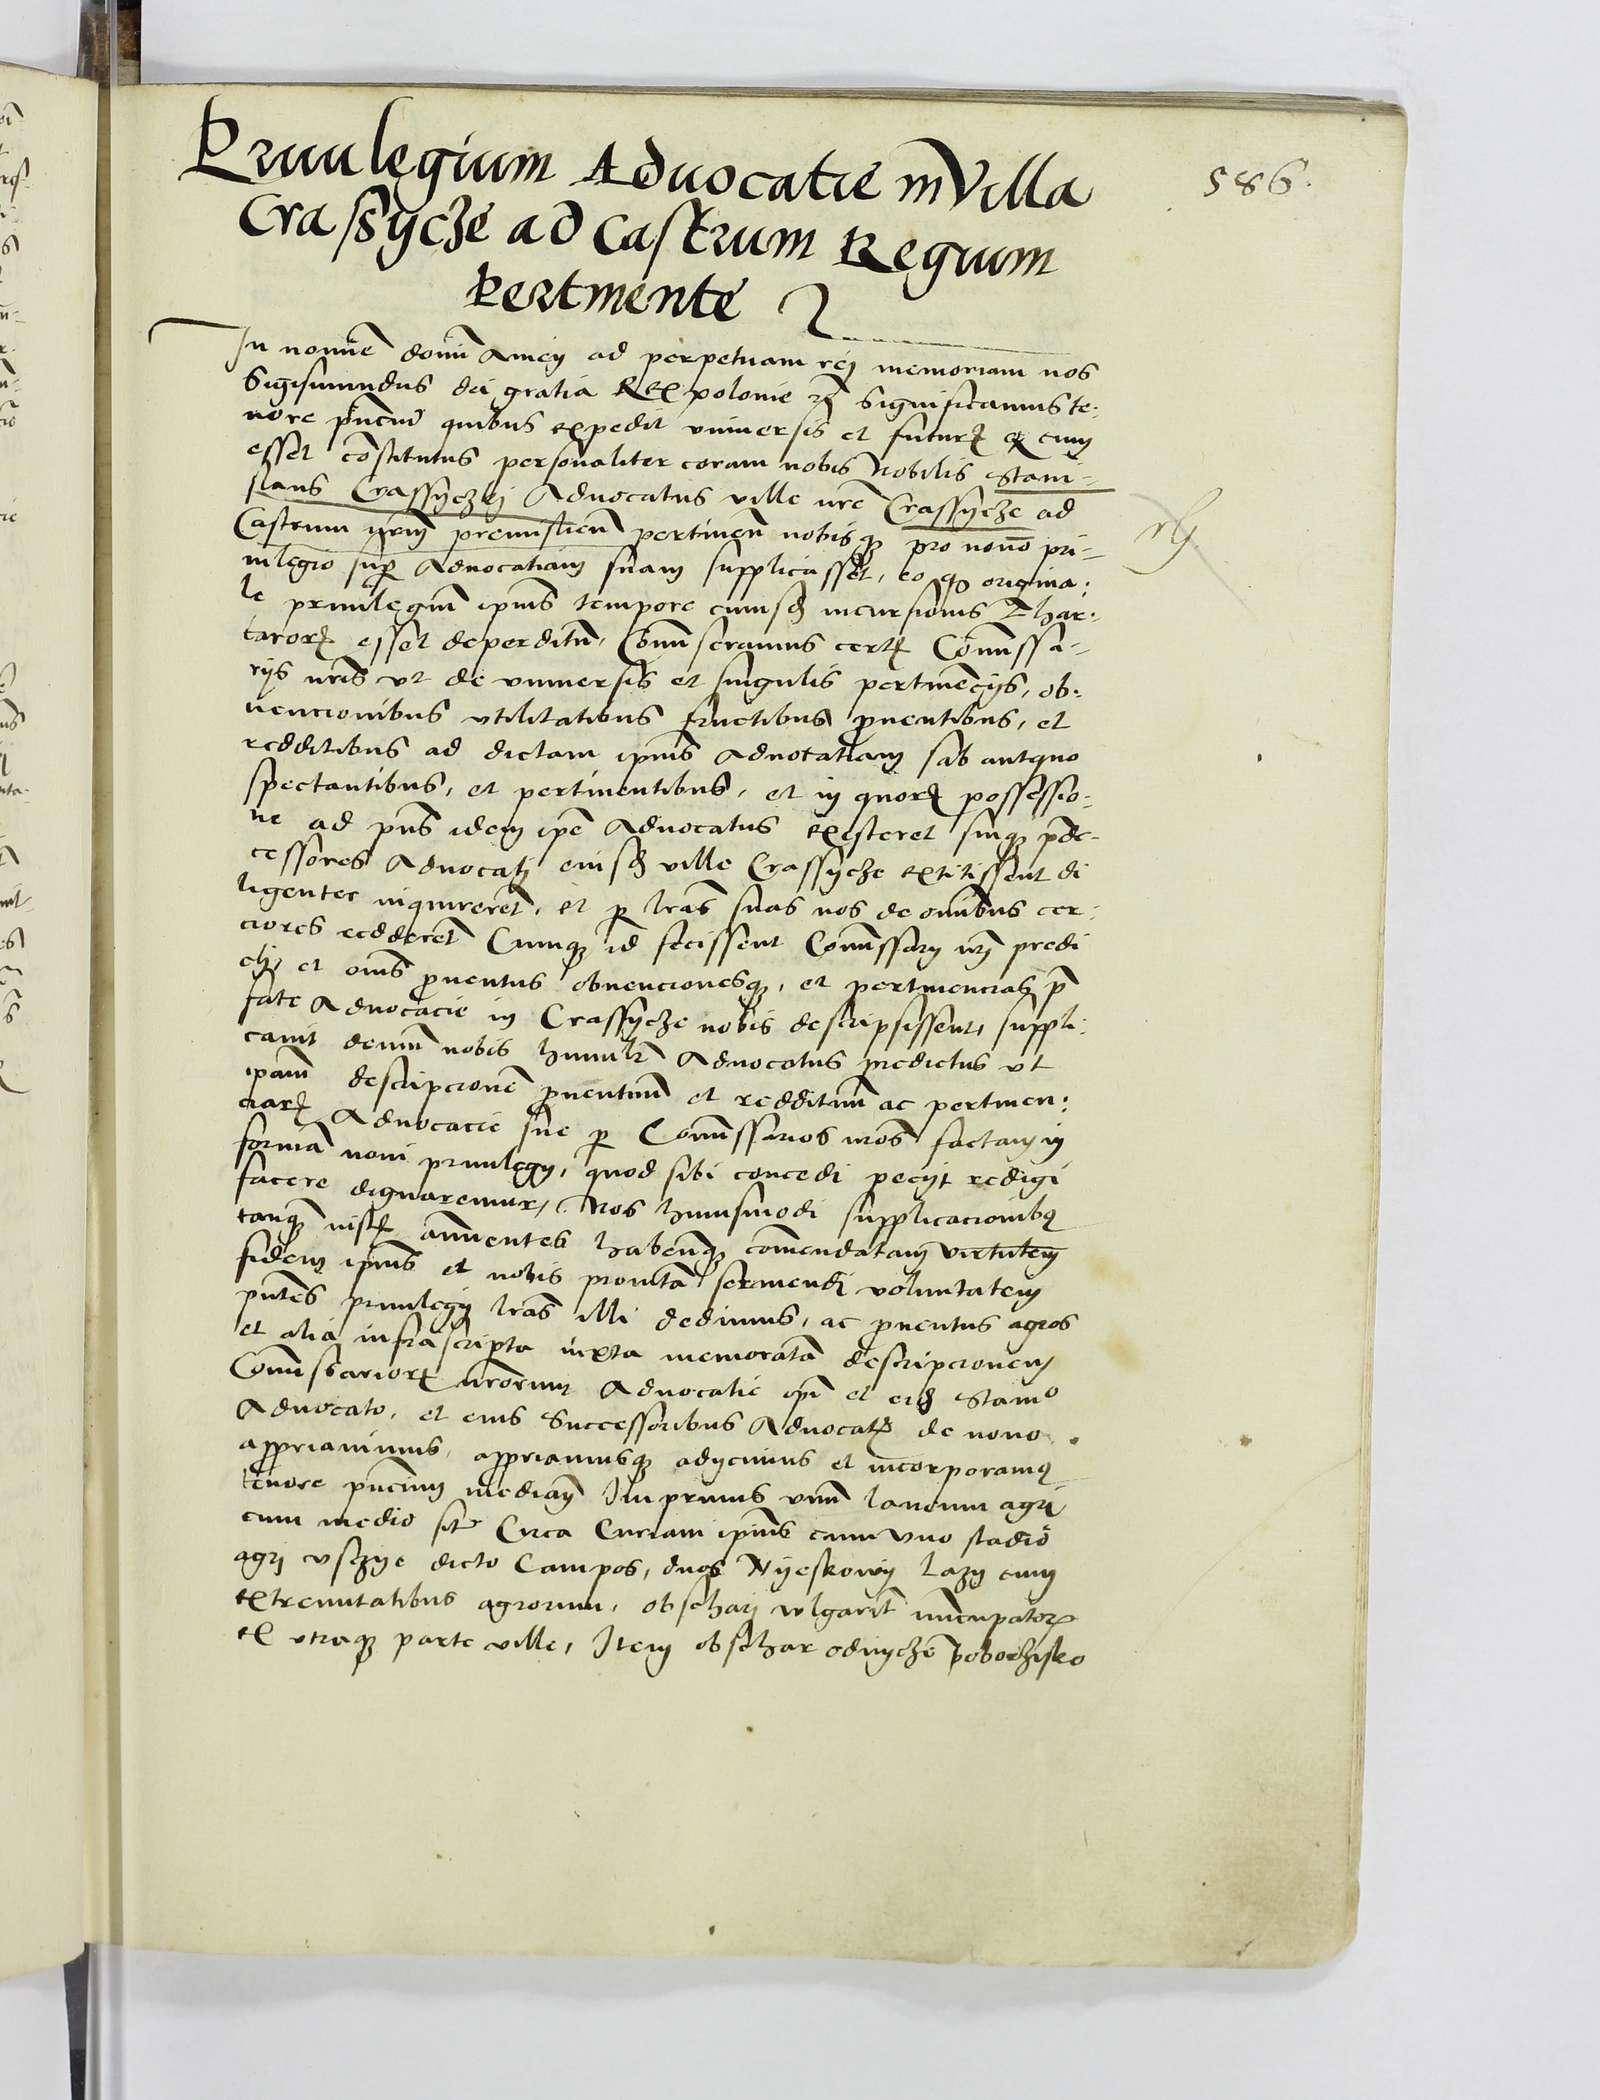 Priuilegium Aduocatie in Villa
Crassycze ad Castrum Regium
Pertinente
586.
In nomine domini Amen ad perpetuam rei memoriam nos
Sigismundus dei gratia Rex polonie Significamus te-
nore quibus expedit vniuersis et futuris cum
esset constitutus personaliter coram nobis Nobilis Stani-
slaus Crassyczky Aduocatus ville nre Crassycze ad
Castrum nrm premislien pertinen nobisque pro nouo pri-
uilegio super Aduocatiam suam supplicasset, eo origina-
le priuilegium ipius tempore cuiusd incursionis Thar-
tarorum esset deperditum, Comiseramus certis Comissa-
rijs nris vt de vniuersis et singulis pertinencijs, ob-
uencionibus vtilitatibus fructibus prouentibus, et
redditibus ad dictam ipius Aduocatiam sab antquo
spectantibus, et pertinentibus, et in quorum possessio-
ne ad pns idem ipe Aduocatus existeret suique prede-
cessores Aduocati eiusd ville Crassycze extitissent di
ligenter inquirerent, et per lras suas nos de omibus cer-
ciores redderent Cumque id fecissent Comissarij nri predi
cti et omes prouentus obuencionesque, et pertinencias pre
fate Aduocacie in Crassycze nobis descripsissent, suppli-
cauit demum nobis humilr Aduocatus predictus vt
ipam descripcionem prouentuum et reddituum ac pertinen-
ciarum Aduocacie sue per Comissarios nros factam in
formam noui priuilegij, quod sibi concedi petijt redigi
facere dignaremur, Nos huiusmodi supplicacionibus
tanquam iustis annuentes habentesque comendatam virtutem
fidem ipius et nobis promtam seruiendi voluntatem
pntes priuilegij lras illi dedimus, ac prouentus agros
et alia infrascripta iuxta memoratam descripcionem
Comissariorum nrorum Aduocatie ipi et eid Stanio
Aduocato, et eius Successoribus Aduocatis de nouo
appropriauimus, appropriamusque adijcimus et incorporamus
tenore pncium mediante Inprimis vnum laneum agri
cum medio sit Circa Curiam ipius cum vno stadio
agri vsczye dicto Campos, duos Nyeskowy Lazy cum
extremitatibus agrorum, obschari vlgariter nuncupatorum
ex vtraque parte ville, Item obschar odnycze poborzisko